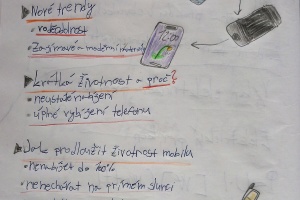 Nové trendy
• rozložitelnost
• Zajímavé a moderní materiály
12:00
krátká životnost a proč?
• neustálé nabíjení
• úplné vybíjení telefonu
Jak prodloužit životnost mobilu
• nenabíjet do 100%
• nenechávat na přímém slunci